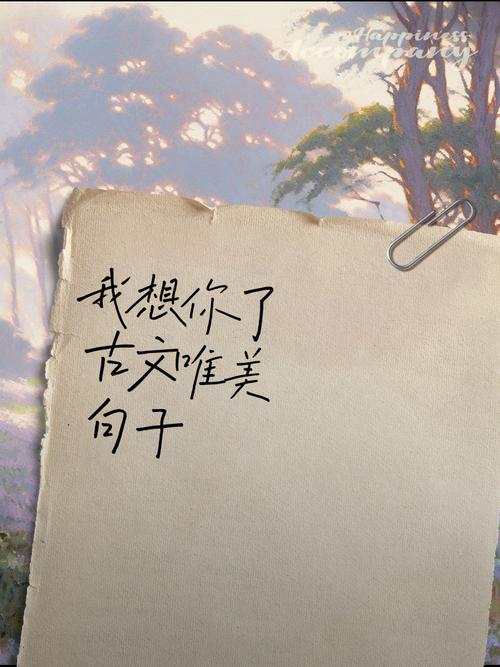 Happiness
Accompany
我想你了
古文唯美
句子